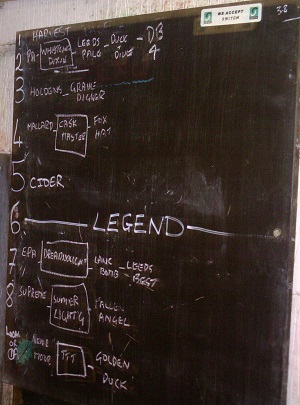 WE ACCEPT
SWITCH
38
HARVEST
2 PA- WHISTLING DUCK - LEEDS PALE - DUCK & DIVE - DB 4
3 HOLDENS - GRAVE DIGGER
4 MALLARD CASK MASTER - FOX HAT
5 CIDER
6 LEGEND
7 EPA DREADNOUGHT LANC BOMB - LEEDS BEST
8 SUPREME SUMMER LIGHT'G FALLEN ANGEL
TTT GOLDEN DUCK